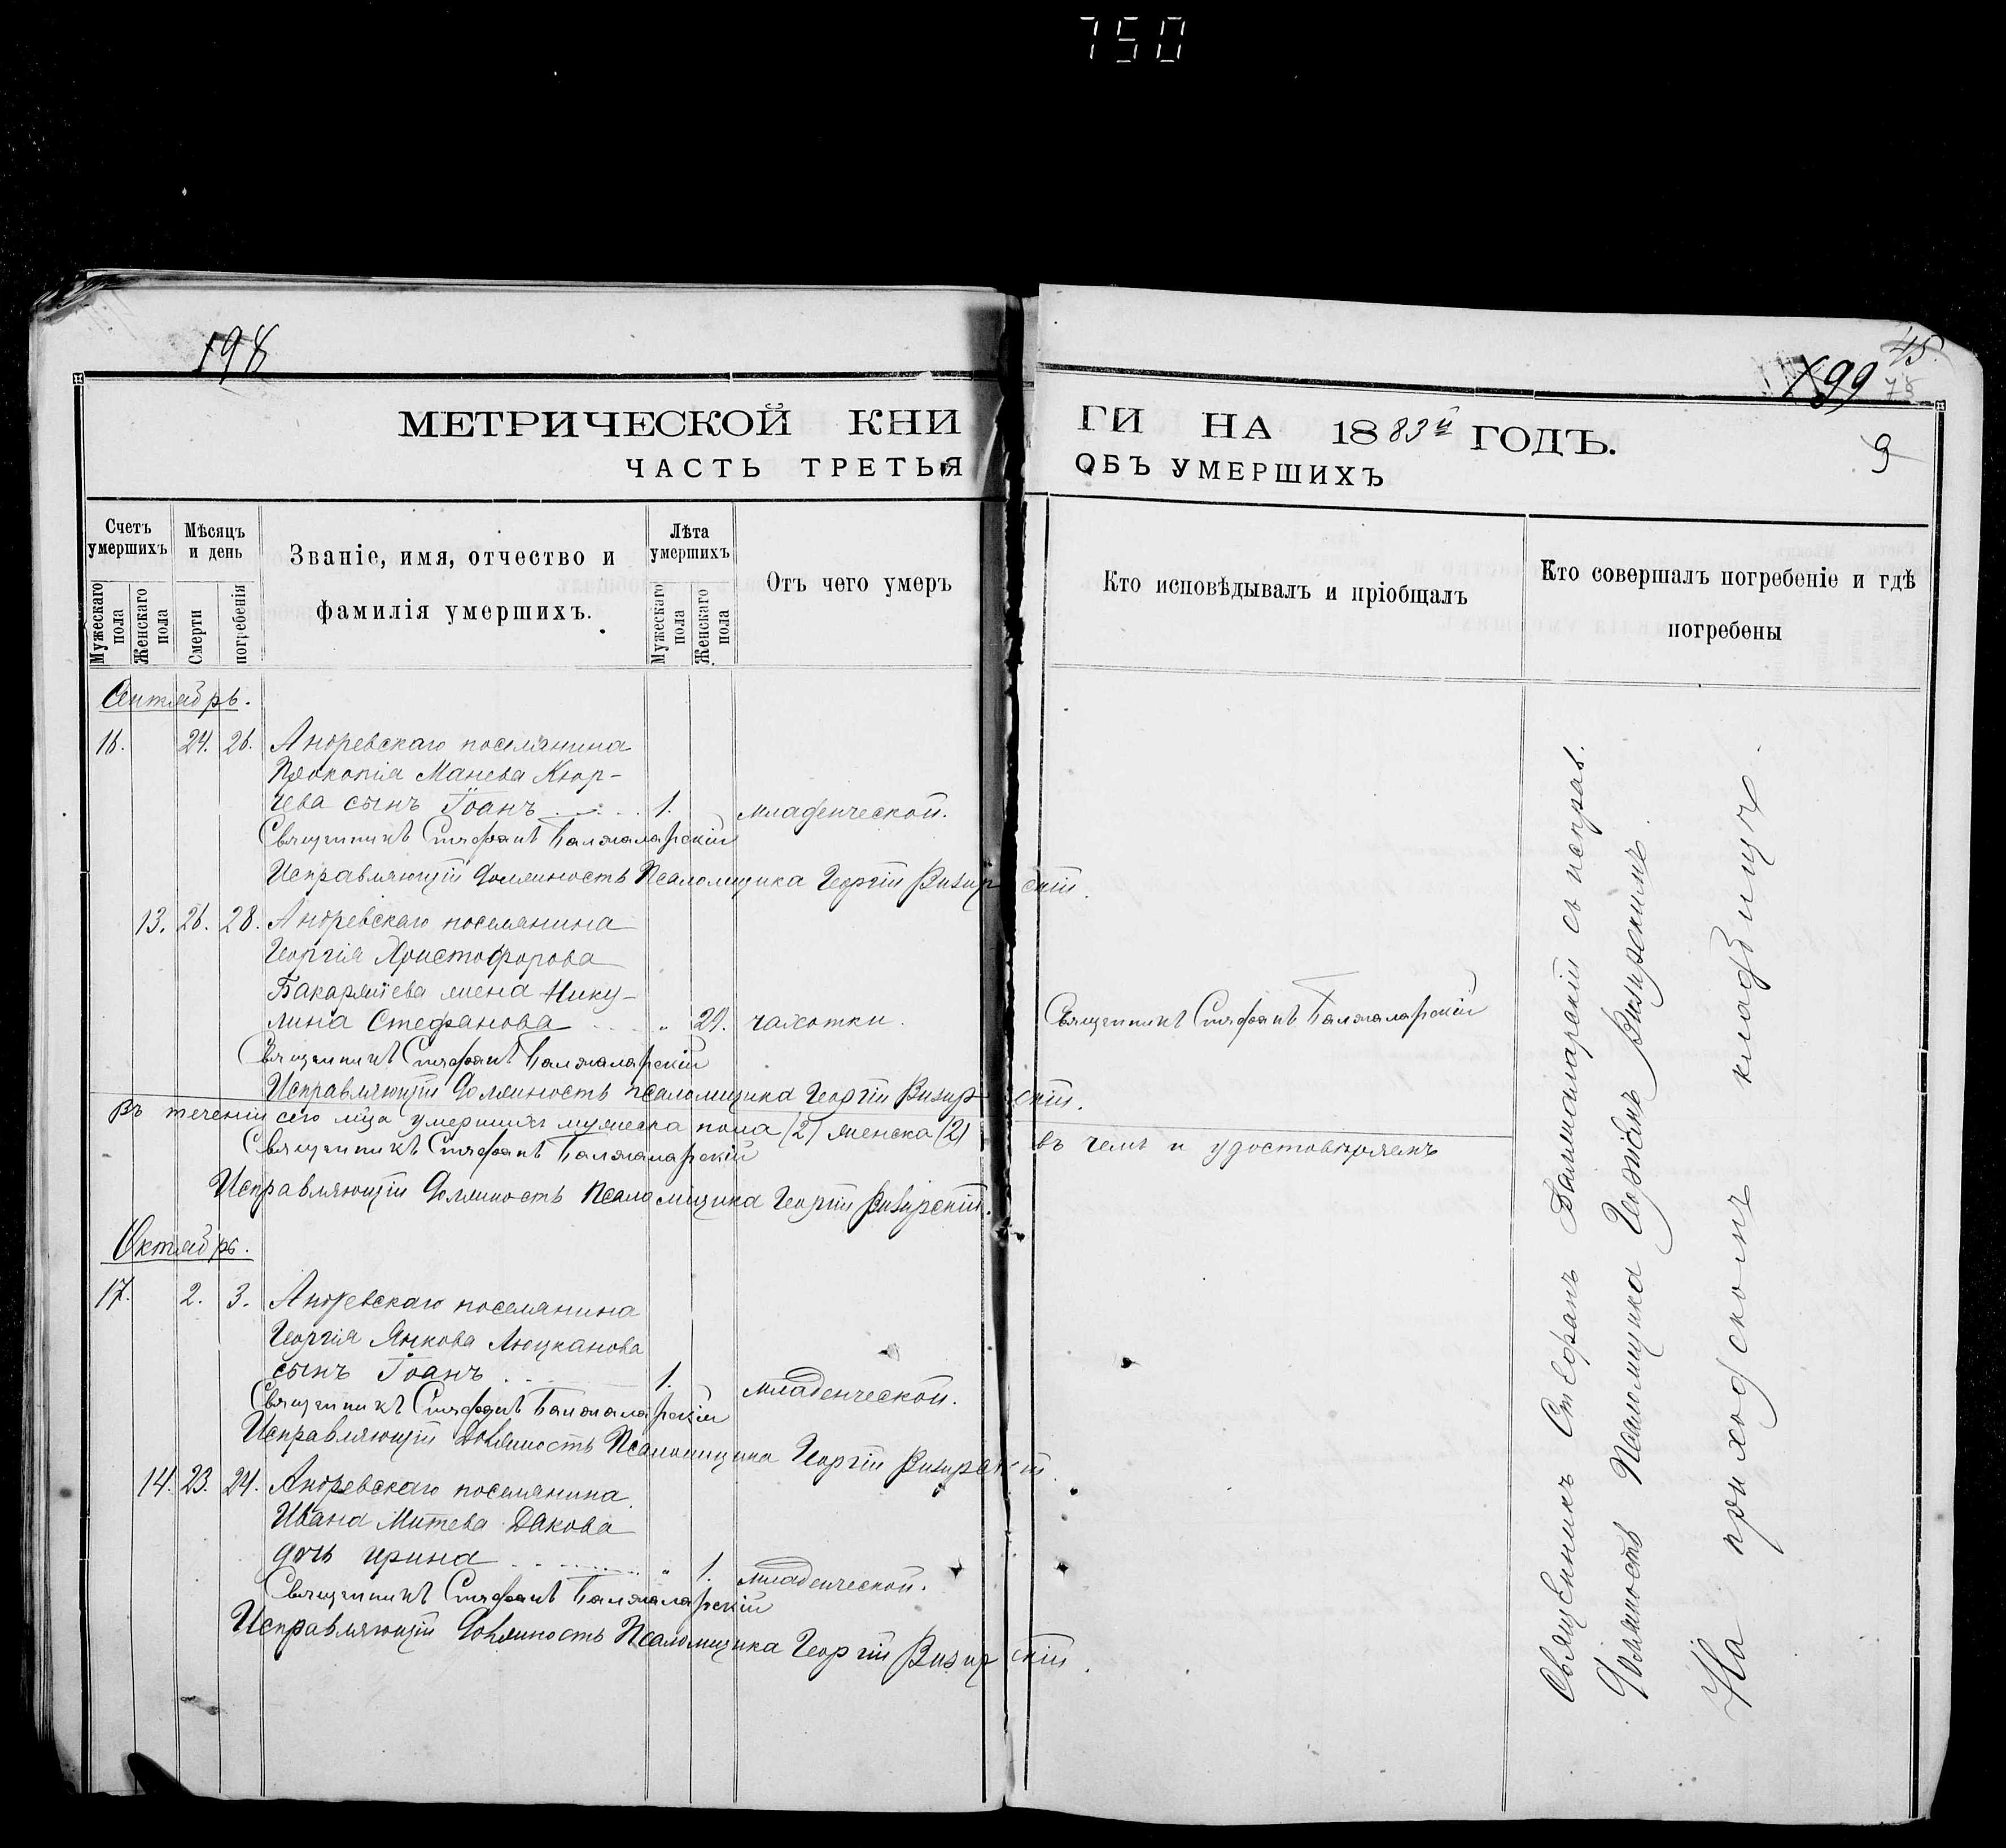 750
198
199
45.
78
9
МЕТРИЧЕСКОЙ КНИ
ГИ НА 1883й ГОДЪ.
ЧАСТЬ ТРЕТЬЯ
ОБЪ УМЕРШИХЪ
Счетъ умершихъ
Мужескаго пола
Женскаго пола
Мѣсяцъ и день
Смерти
погребенія
Званіе, имя, отчество и
фамилія умершихъ.
Лѣта умершихъ
Мужескаго пола
Женскаго пола
Отъ чего умеръ
Кто исповѣдывалъ и пріобщалъ
Кто совершалъ погребеніе и гдѣ
погребены
Сентябрь.
16. 24. 26. Андревскаго поселянина
Прокопія Манева Кюр-
чева сынъ Іоанъ 1. младенческой.
Священникъ Стефанъ Балжаларскій
Исправляющій должность Псаломщика Георгій Визирскій.
13. 26. 28. Андревскаго поселянина
Георгія Христофорова
жена Нику-
лина Стефанова " 29. чахотки.
Священникъ Стефанъ Балжаларскій
Священникъ Стефанъ Балжаларскій
Исправляющій должность псаломщика Георгій Визирскій.
Въ теченіи сего мѣца умершихъ мужеска пола (2) женска (2)
въ чемъ и удостовѣряемъ
Священникъ Стефанъ Балжаларскій
Исправляющій должность Псаломщика Георгій Визирскій.
Октябрь.
17. 2. 3. Андревскаго поселянина
Георгія Янкова Люцканова
сынъ Іоанъ 1. младенческой.
Священникъ Стефанъ Балжаларскій
Исправляющій должность Псаломщика Георгій Визирскій.
14. 23. 24. Андревскаго поселянина
Ивана Митева Дакова
дочь Ирина " 1. младенческой.
Священникъ Стефанъ Балжаларскій
Исправляющій должность Псаломщика Георгій Визирскій.
Священникъ Стефанъ Балжаларскій съ исправ.
должность Псаломщика Георгіемъ Визирскимъ.
На приходскомъ кладбищѣ.